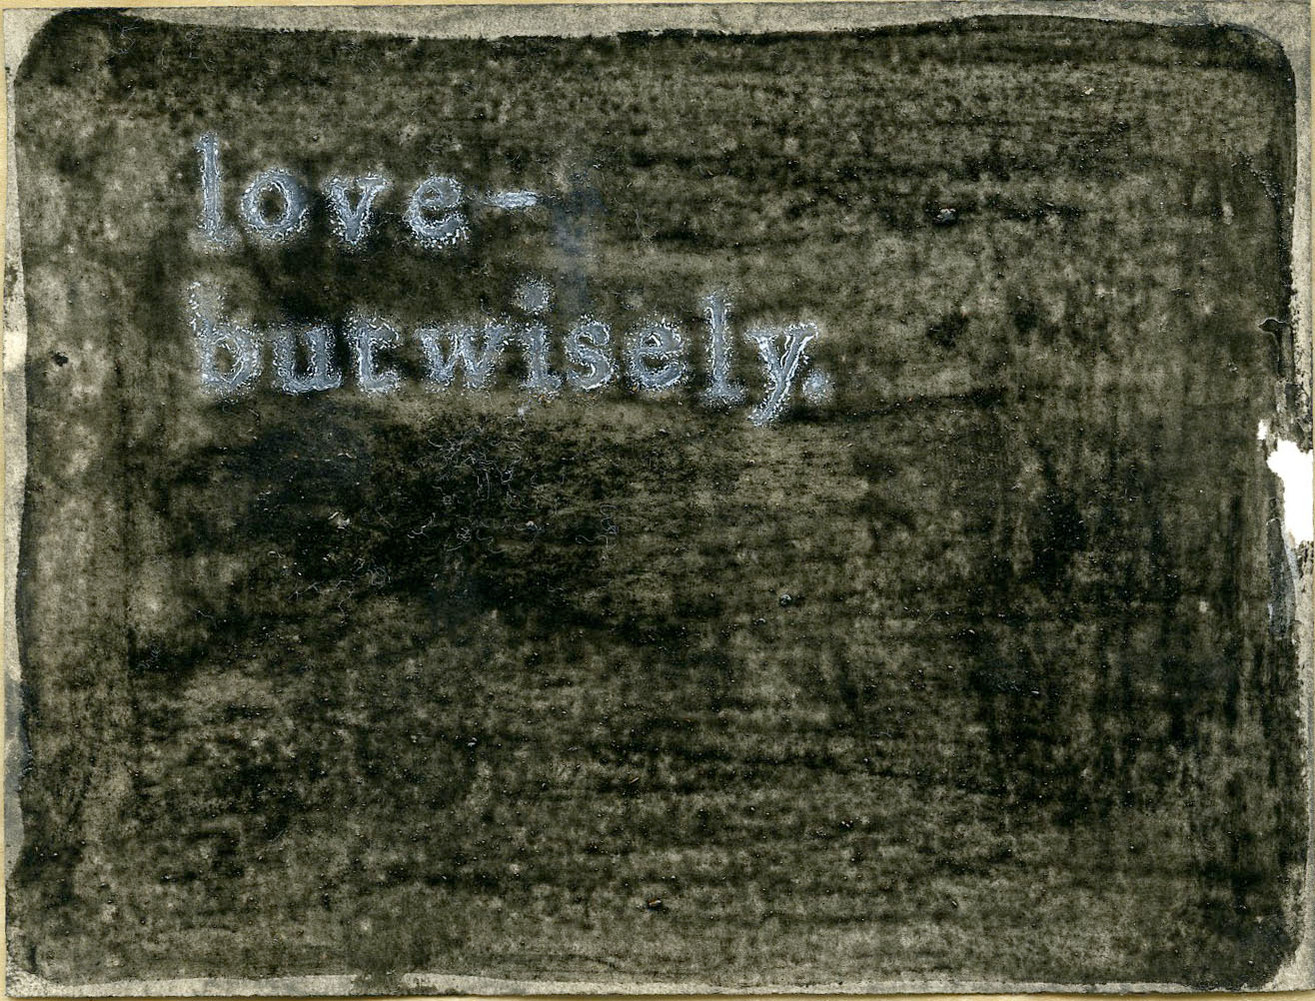 love-
but wisely.